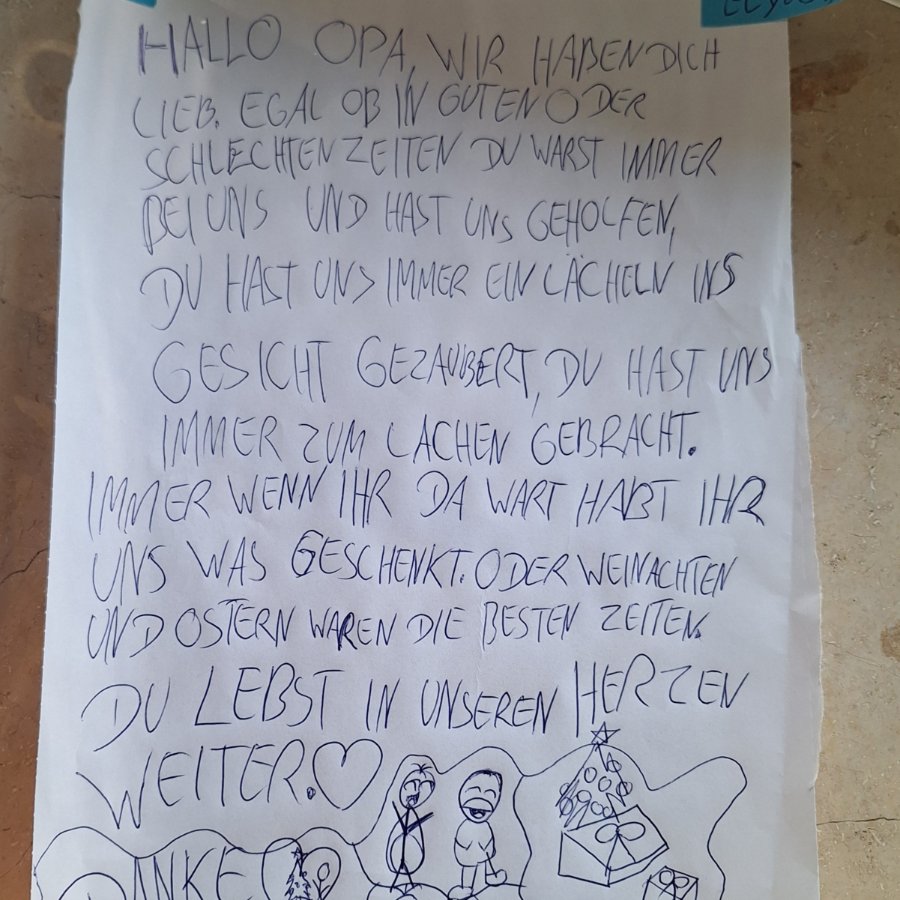 HALLO OPA, WIR HABEN DICH
LIEB. EGAL OB IN GUTEN ODER
SCHLECHTEN ZEITEN DU WARST IMMER
BEI UNS UND HAST UNS GEHOLFEN,
DU HAST UNS IMMER EIN LÄCHELN INS
GESICHT GEZAUBERT, DU HAST UNS
IMMER ZUM LACHEN GEBRACHT.
IMMER WENN IHR DA WART HABT IHR
UNS WAS GESCHENKT. ODER WEINACHTEN
UND OSTERN WAREN DIE BESTEN ZEITEN.
DU LEBST IN UNSEREN HERZEN
WEITER.♡
DANKE